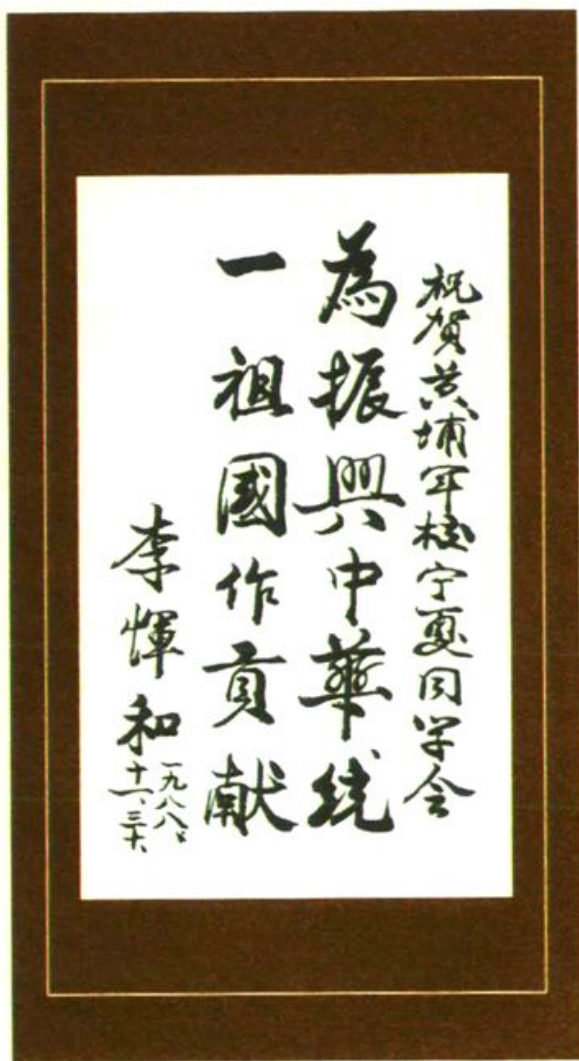 祝贺黄埔军校宁夏同学会
為振興中華统
一祖國作貢献
李惲和
一九八八、
十一、三十、